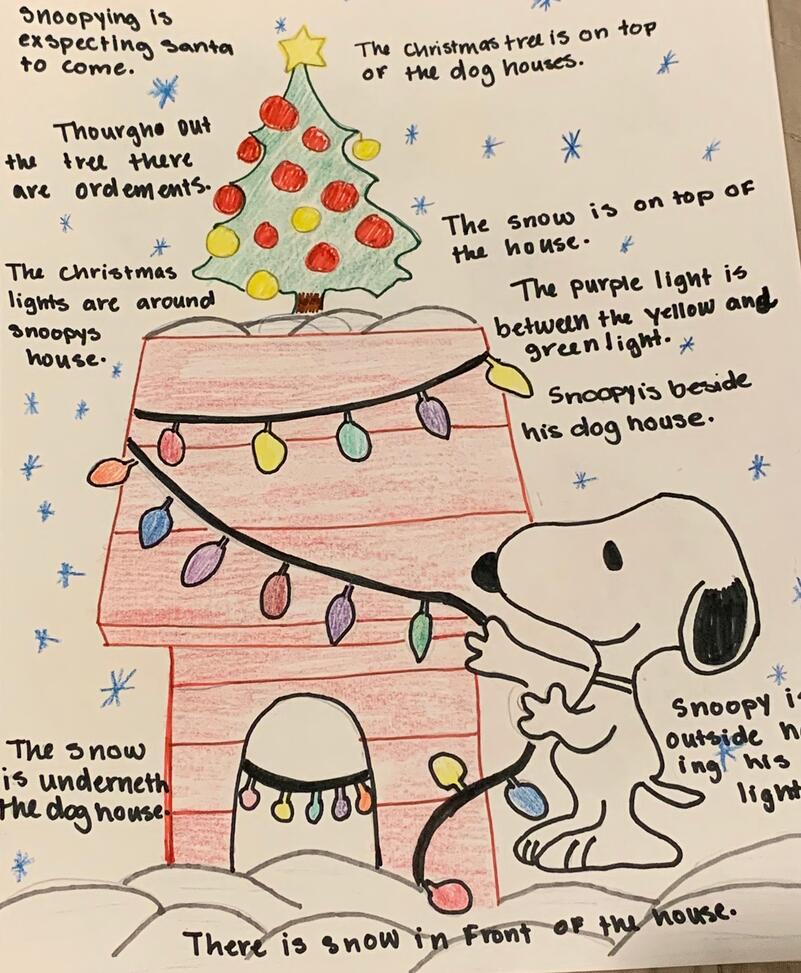 Snoopying is
exspecting santa
to come.
The Christmas tree is on top
of the dog houses.
Thourgho out
the tree there
are ordements.
The snow is on top of
the house.
The Christmas
lights are around
snoopys
house.
The purple light is
between the yellow and
green light.
Snoopy is beside
his dog house.
Snoopy is
outside
ing his
light
The snow
is underneth
the dog house.
There is snow in Front of the house.